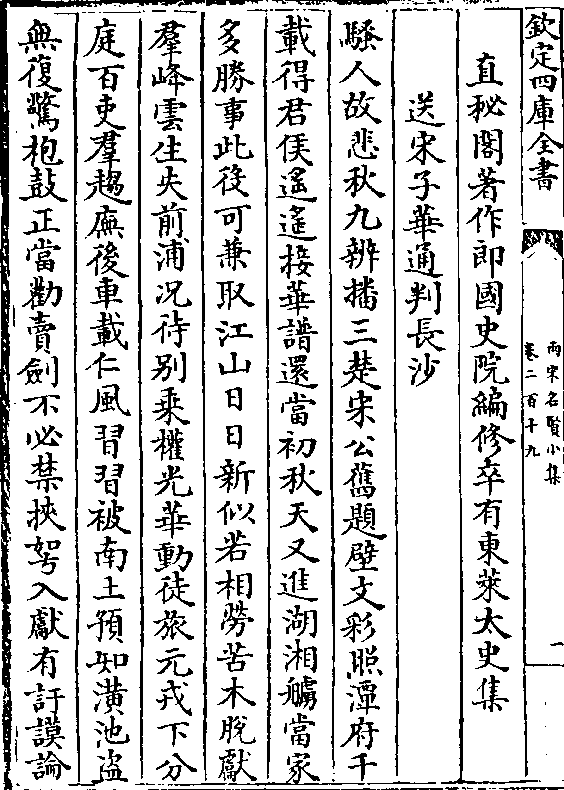 欽定四庫全書
兩宋名賢小集
卷二百十九
一
直秘閣著作郎國史院編修卒有東萊太史集
送宋子華通判長沙
騷人故悲秋九辨播三楚宋公舊題壁文彩照潭府千
載得君侯遙遙接華譜還當初秋天又進湖湘艣當家
多勝事此役可兼取江山日日新似若相勞苦木脫獻
羣峰雲生失前浦况待别乘權光華動徒旅元戎下分
庭百吏羣趨廡後車載仁風習習被南土預知潢池盜
無復驚枹鼓正當勸賣劍不必禁挾弩入獻有訏謨論